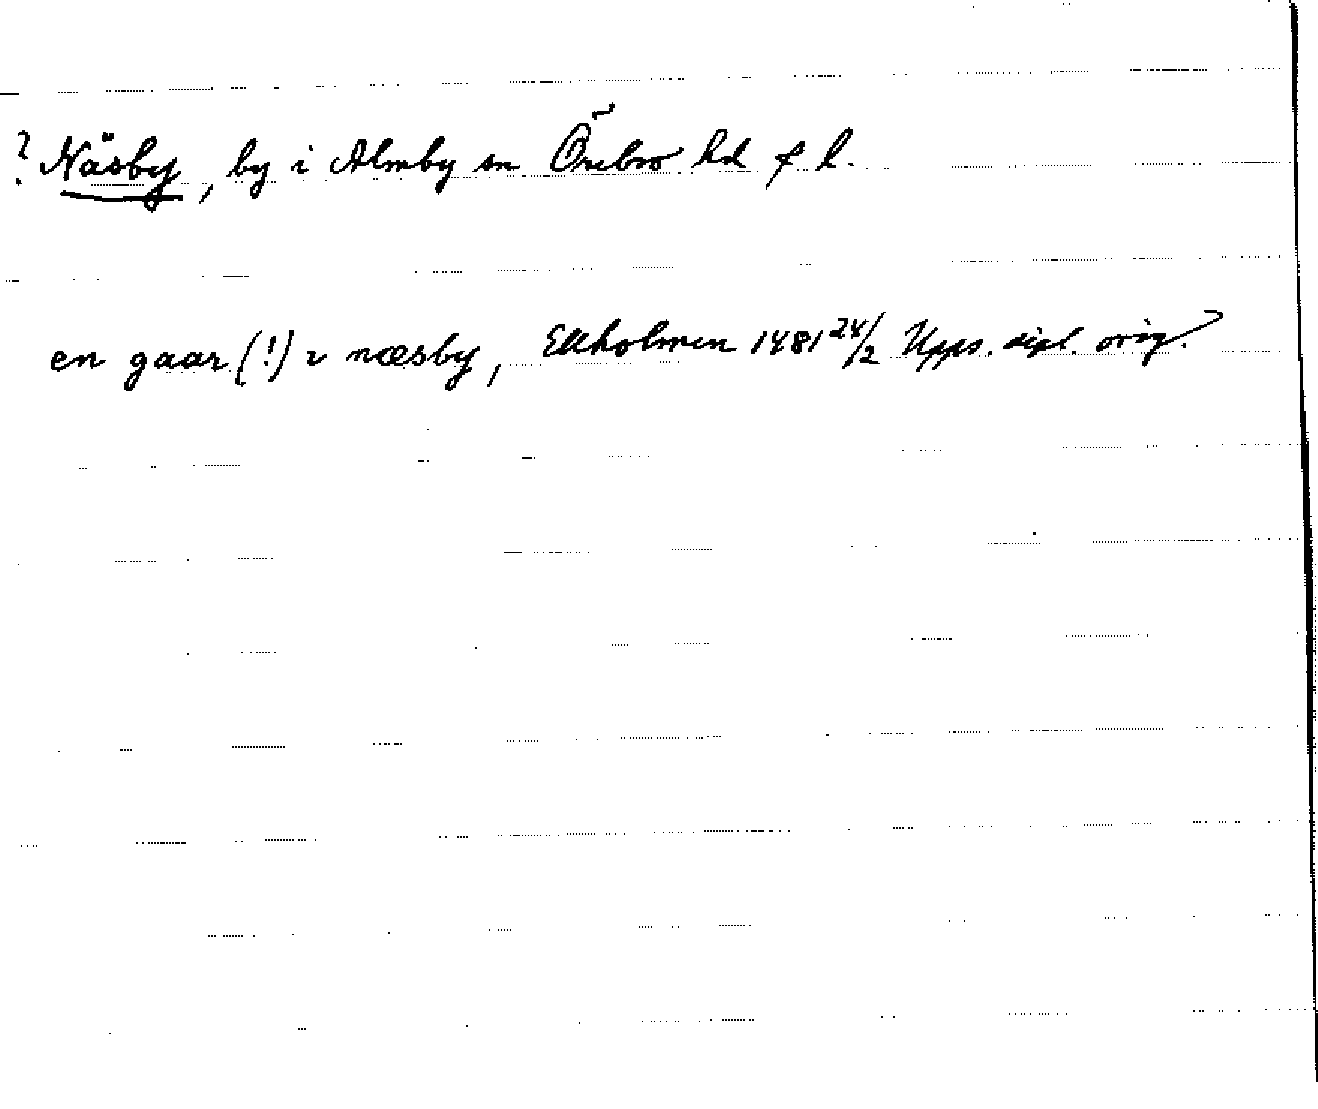 ? Näsby, by i Almby sn Örebro hd f. l.
en gaar (!) i næsby, Ekholmen 1481 24/2 Upps. dipl. orig.